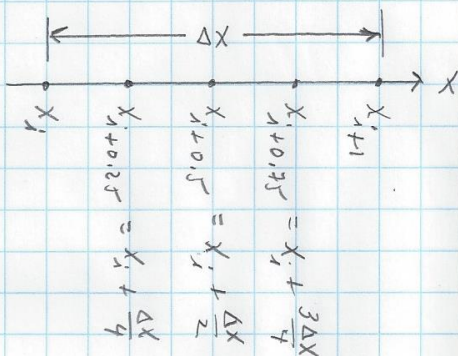 Δx
x
x_i
x_{i+0,25} = x_i + Δx/4
x_{i+0,5} = x_i + Δx/2
x_{i+0,75} = x_i + 3Δx/4
x_{i+1}